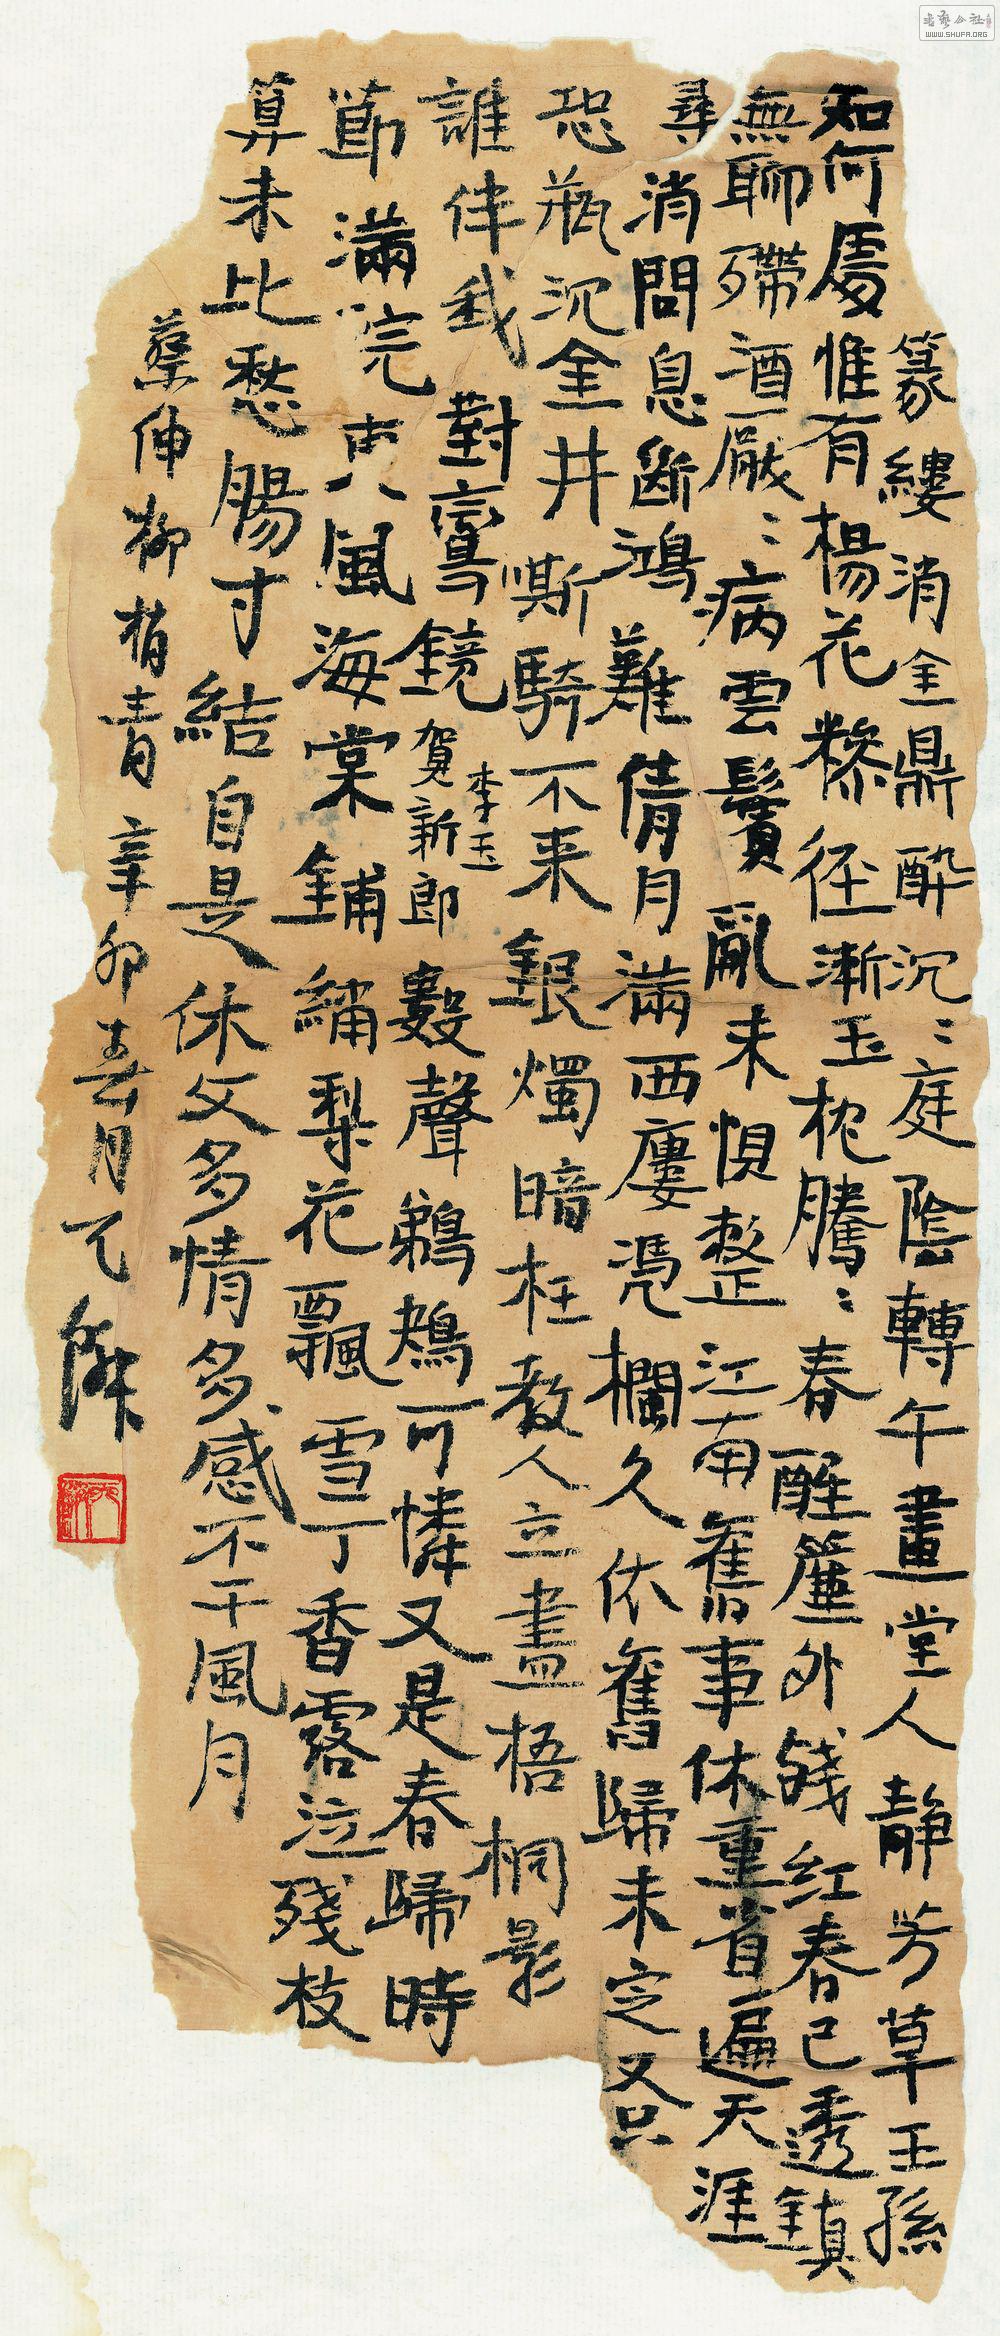 篆縷消金鼎醉沉〻庭陰轉午畫堂人靜芳草王孫
知何處惟有楊花糝徑漸玉枕騰〻春醒簾外殘红春已透鎮
無聊殢酒厭〻病雲鬢亂未惧整江南舊事休重省遍天涯
尋消問息斷鴻難倩月滿西廔憑欄久依舊歸未定又只
恐瓶沉金井嘶騎不来銀燭暗枉教人立盡梧桐影
誰伴我對鸞鏡
李玉
賀新郎
數聲鵜鴂可憐又是春歸時
節滿院東風海棠鋪繡梨花飄雪丁香露泣殘枝
算未比愁腸寸結自是休文多情多感不干風月
蔡伸柳梢青辛卯春月
書藝公社
WWW.SHUFA.ORG